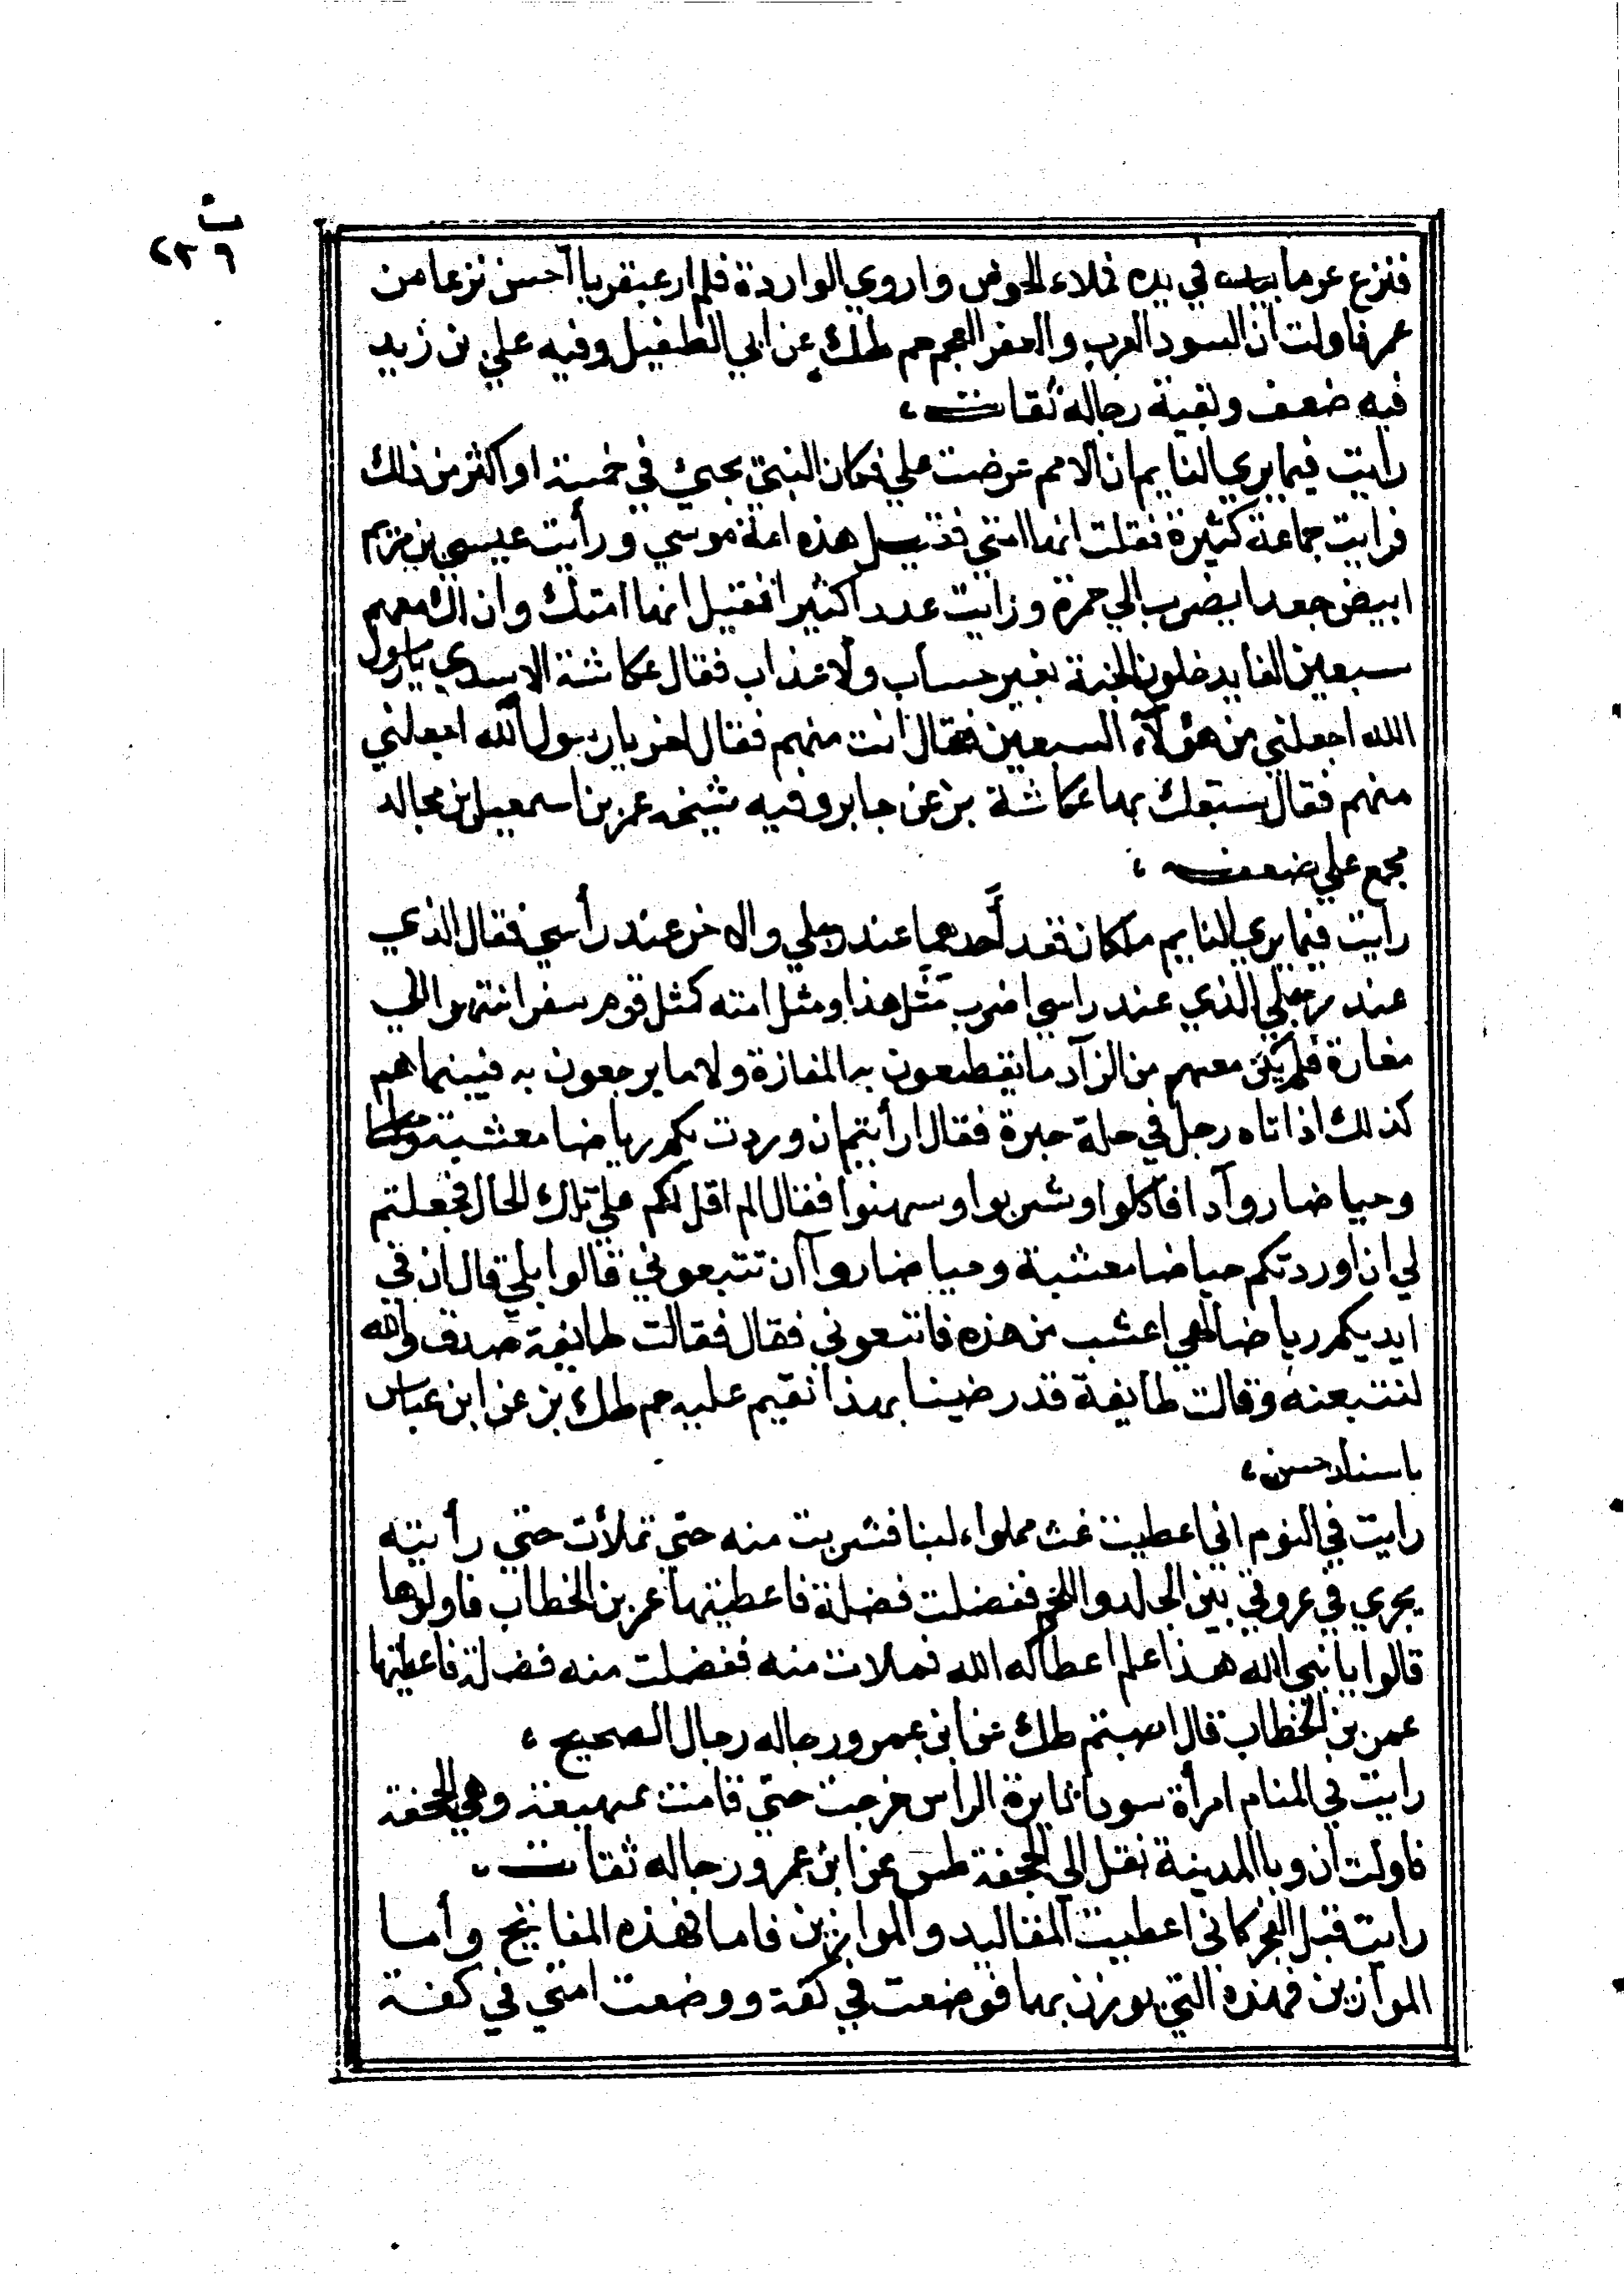 ث
٢٣٦
فنزع عمر ما بيده في يده فملاء الحوض واروي الواردة فلم ار عبقريا احسن نزعا من
عمر فاولت ان السود العرب والعفر العجم حم طك عن ابي الطفيل وفيه علي بن زيد
فيه ضعف وبقية رجاله ثقات،
رايت فيما يري النايم ان الامم عرضت علي فكان النبي يجئ في خمسة او اكثر من ذلك
فرايت جماعة كثيرة فقلت انها امتي فقيل هذه امة موسي ورأيت عيسي بن مريم
ابيض جعدا يضرب الي حمرة ورايت عددا كثيرا فقيل انها امتك وان لك معهم
سبعين الفا يدخلون الجنة بغير حساب ولا عذاب فقال عكاشة الاسدي يا رسول
الله اجعلني من هؤلآء السبعين فقال انت منهم فقال اخر يا رسول الله اجعلني
منهم فقال سبقك بها عكاشة بز عن جابر وفيه شيخه عمر بن اسمعيل بن مجالد
مجمع علي ضعفه،
رايت فيما يري النايم ملكان قعد أحدهما عند رجلي والاخر عند رأسي فقال الذي
عند رجلي للذي عند راسي اضرب مثل هذا ومثل امته كمثل قوم سفر انتهوا الي
مفازة فلم يكن معهم من الزآد ما يقطعون به المفازة ولا ما يرجعون به فبينما هم
كذلك اذ اتاه رجل في حلة حبرة فقال ارأيتم ان وردت بكم رياضا معشبة
وحياضا روآدا فاكلوا وشربوا وسمنوا فقال الم اقل لكم علي تلك الحال فجعلتم
لي ان اوردتكم حياضا معشبة وحياضا روآ ان تتبعوني قالوا بلي قال ان في
ايديكم رياضا هي اعشب من هذه فاتبعوني فقال فقالت طايفة صدق والله
لنتبعنه وقالت طايفة قد رضينا بهذا نقيم عليه حم طك بز عن ابن عباس
باسناد حسن،
رايت في النوم اني اعطيت عث مملواء لبنا فشربت منه حتي تملأت حتي رأيته
يجري في عروقي بين الجلد واللحم ففضلت فضلة فاعطيتها عمر بن الخطاب فاولوها
قالوا يا نبي الله هذا علم اعطاكه الله فملات منه ففضلت منه فضلة فاعطيتها
عمر بن الخطاب قال اصبتم طك عن ابن عمر ورجاله رجال الصحيح،
رايت في المنام امرأة سودا ثايرة الراس خرجت حتي قامت بمهيعة وهي الجحفة
فاولت ان وبا المدينة نقل الي الجحفة طس عن ابن عمر ورجاله ثقات،
رايت قبل الفجر كاني اعطيت المقاليد والموازين فاما فهذه المفاتيح وأما
الموازين فهذه التي يوزن بها فوضعت في كفة ووضعت امتي في كفة